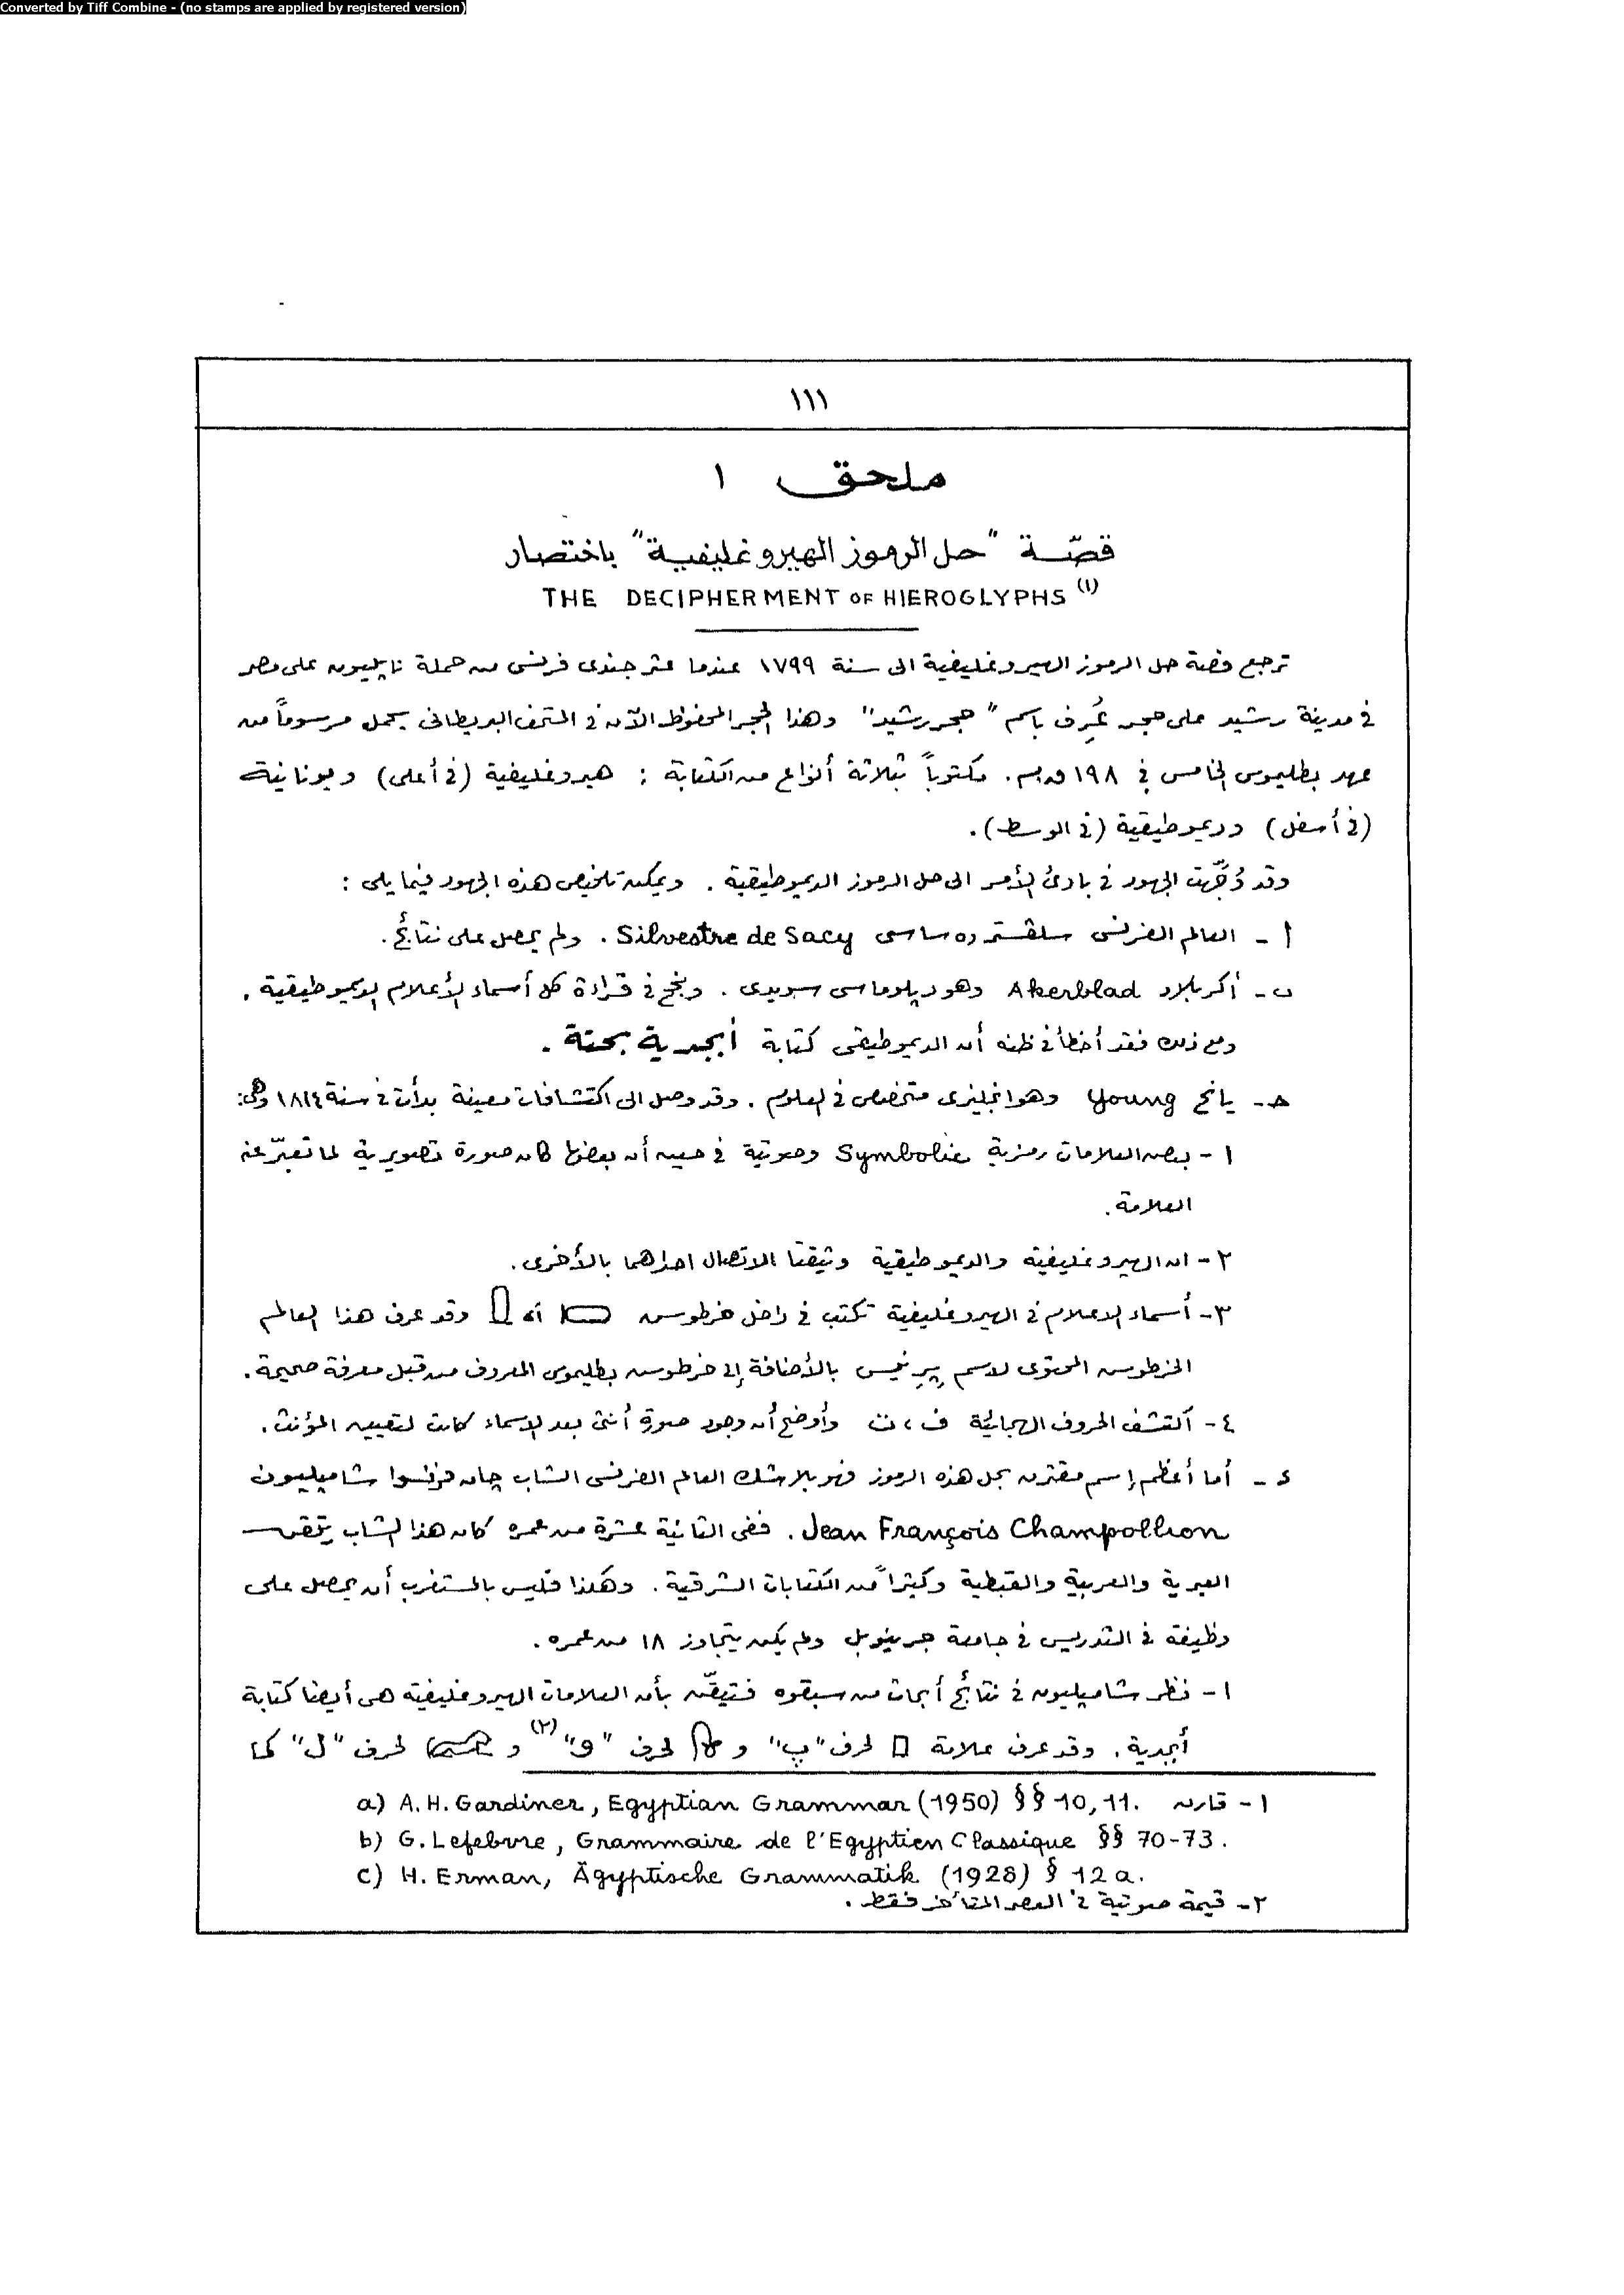 Converted by Tiff Combine - (no stamps are applied by registered version)
١١١
ملحق ١
قصّة "حل الرموز الهيروغليفية" باختصار
THE DECIPHERMENT OF HIEROGLYPHS (١)
ترجع قصة حل الرموز الهيروغليفية الى سنة ١٧٩٩ عندما عثر جندى فرنسى من حملة ناپليون على مصر
فى مدينة رشيد على حجر عُرِف باسم "حجر رشيد" وهذا الحجر المحفوظ الآن فى المتحف البريطانى يحمل مرسوماً من
عهد بطليموس الخامس فى ١٩٨ ق.م. مكتوباً بثلاثة أنواع من الكتابة : هيروغليفية (فى أعلى) ويونانية
(فى أسفل) وديموطيقية (فى الوسط).
وقد وُجِّهت الجهود فى بادئ الأمر الى حل الرموز الديموطيقية . ويمكن تلخيص هذه الجهود فيما يلى :
أ - العالم الفرنسى سلڤستر ده ساسى Silvestre de Sacy . ولم يحصل على نتائج.
ب - أكربلاد Akerblad وهو دپلوماسى سويدى . ونجح فى قراءة كل أسماء الأعلام الديموطيقية .
ومع ذلك فقد أخطأ فى ظنه أن الديموطيقى كتابة أبجدية بحتة .
حـ - يانج Young وهو انجليزى متخصص فى العلوم . وقد وصل الى اكتشافات معينة بدأت فى سنة ١٨١٤ وهى:
١ - بعض العلامات رمزية Symbolic وصوتية فى حين أن بعضها كان صورة تصويرية لما تعبّر عنه
العلامة.
٢ - ان الهيروغليفية والديموطيقية وثيقتا الاتصال احداهما بالأخرى.
٣ - أسماء الاعلام فى الهيروغليفية تكتب فى داخل خرطوس أو وقد عرف هذا العالم
الخرطوس المحتوى لاسم پِرِنيس بالأضافة إلى خرطوس بطليموس المعروف من قبل معرفة صحيحة.
٤ - اكتشف الحروف الهجائية ف ، ت وأوضح أن وجود صورة أنثى بعد الاسماء كانت لتعيين المؤنث .
د - أما أعظم إسم مقترن بحل هذه الرموز فهو بلا شك العالم الفرنسى الشاب چان فرنسوا شامپليون
Jean François Champollion . ففى الثانية عشرة من عمره كان هذا الشاب يتقن
العبرية والعربية والقبطية وكثيراً من الكتابات الشرقية . وهكذا فليس بالمستغرب أن يحصل على
وظيفة فى التدريس فى جامعة جرينوبل ولم يكن يتجاوز ١٨ من عمره .
١ - نظر شامپليون فى نتائج أبحاث من سبقوه فتيقّن بأن العلامات الهيروغليفية هى أيضا كتابة
أبجدية . وقد عرف علامة لحرف "پ" و لحرف "و" (٢) و لحرف "ل" كما
١ - قارن a) A.H. Gardiner, Egyptian Grammar (1950) §§ 10, 11.
b) G. Lefebvre, Grammaire de l'Egyptien Classique §§ 70-73.
c) H. Erman, Ägyptische Grammatik (1928) § 12 a.
٢ - قيمة صوتية فى العصر المتأخر فقط .